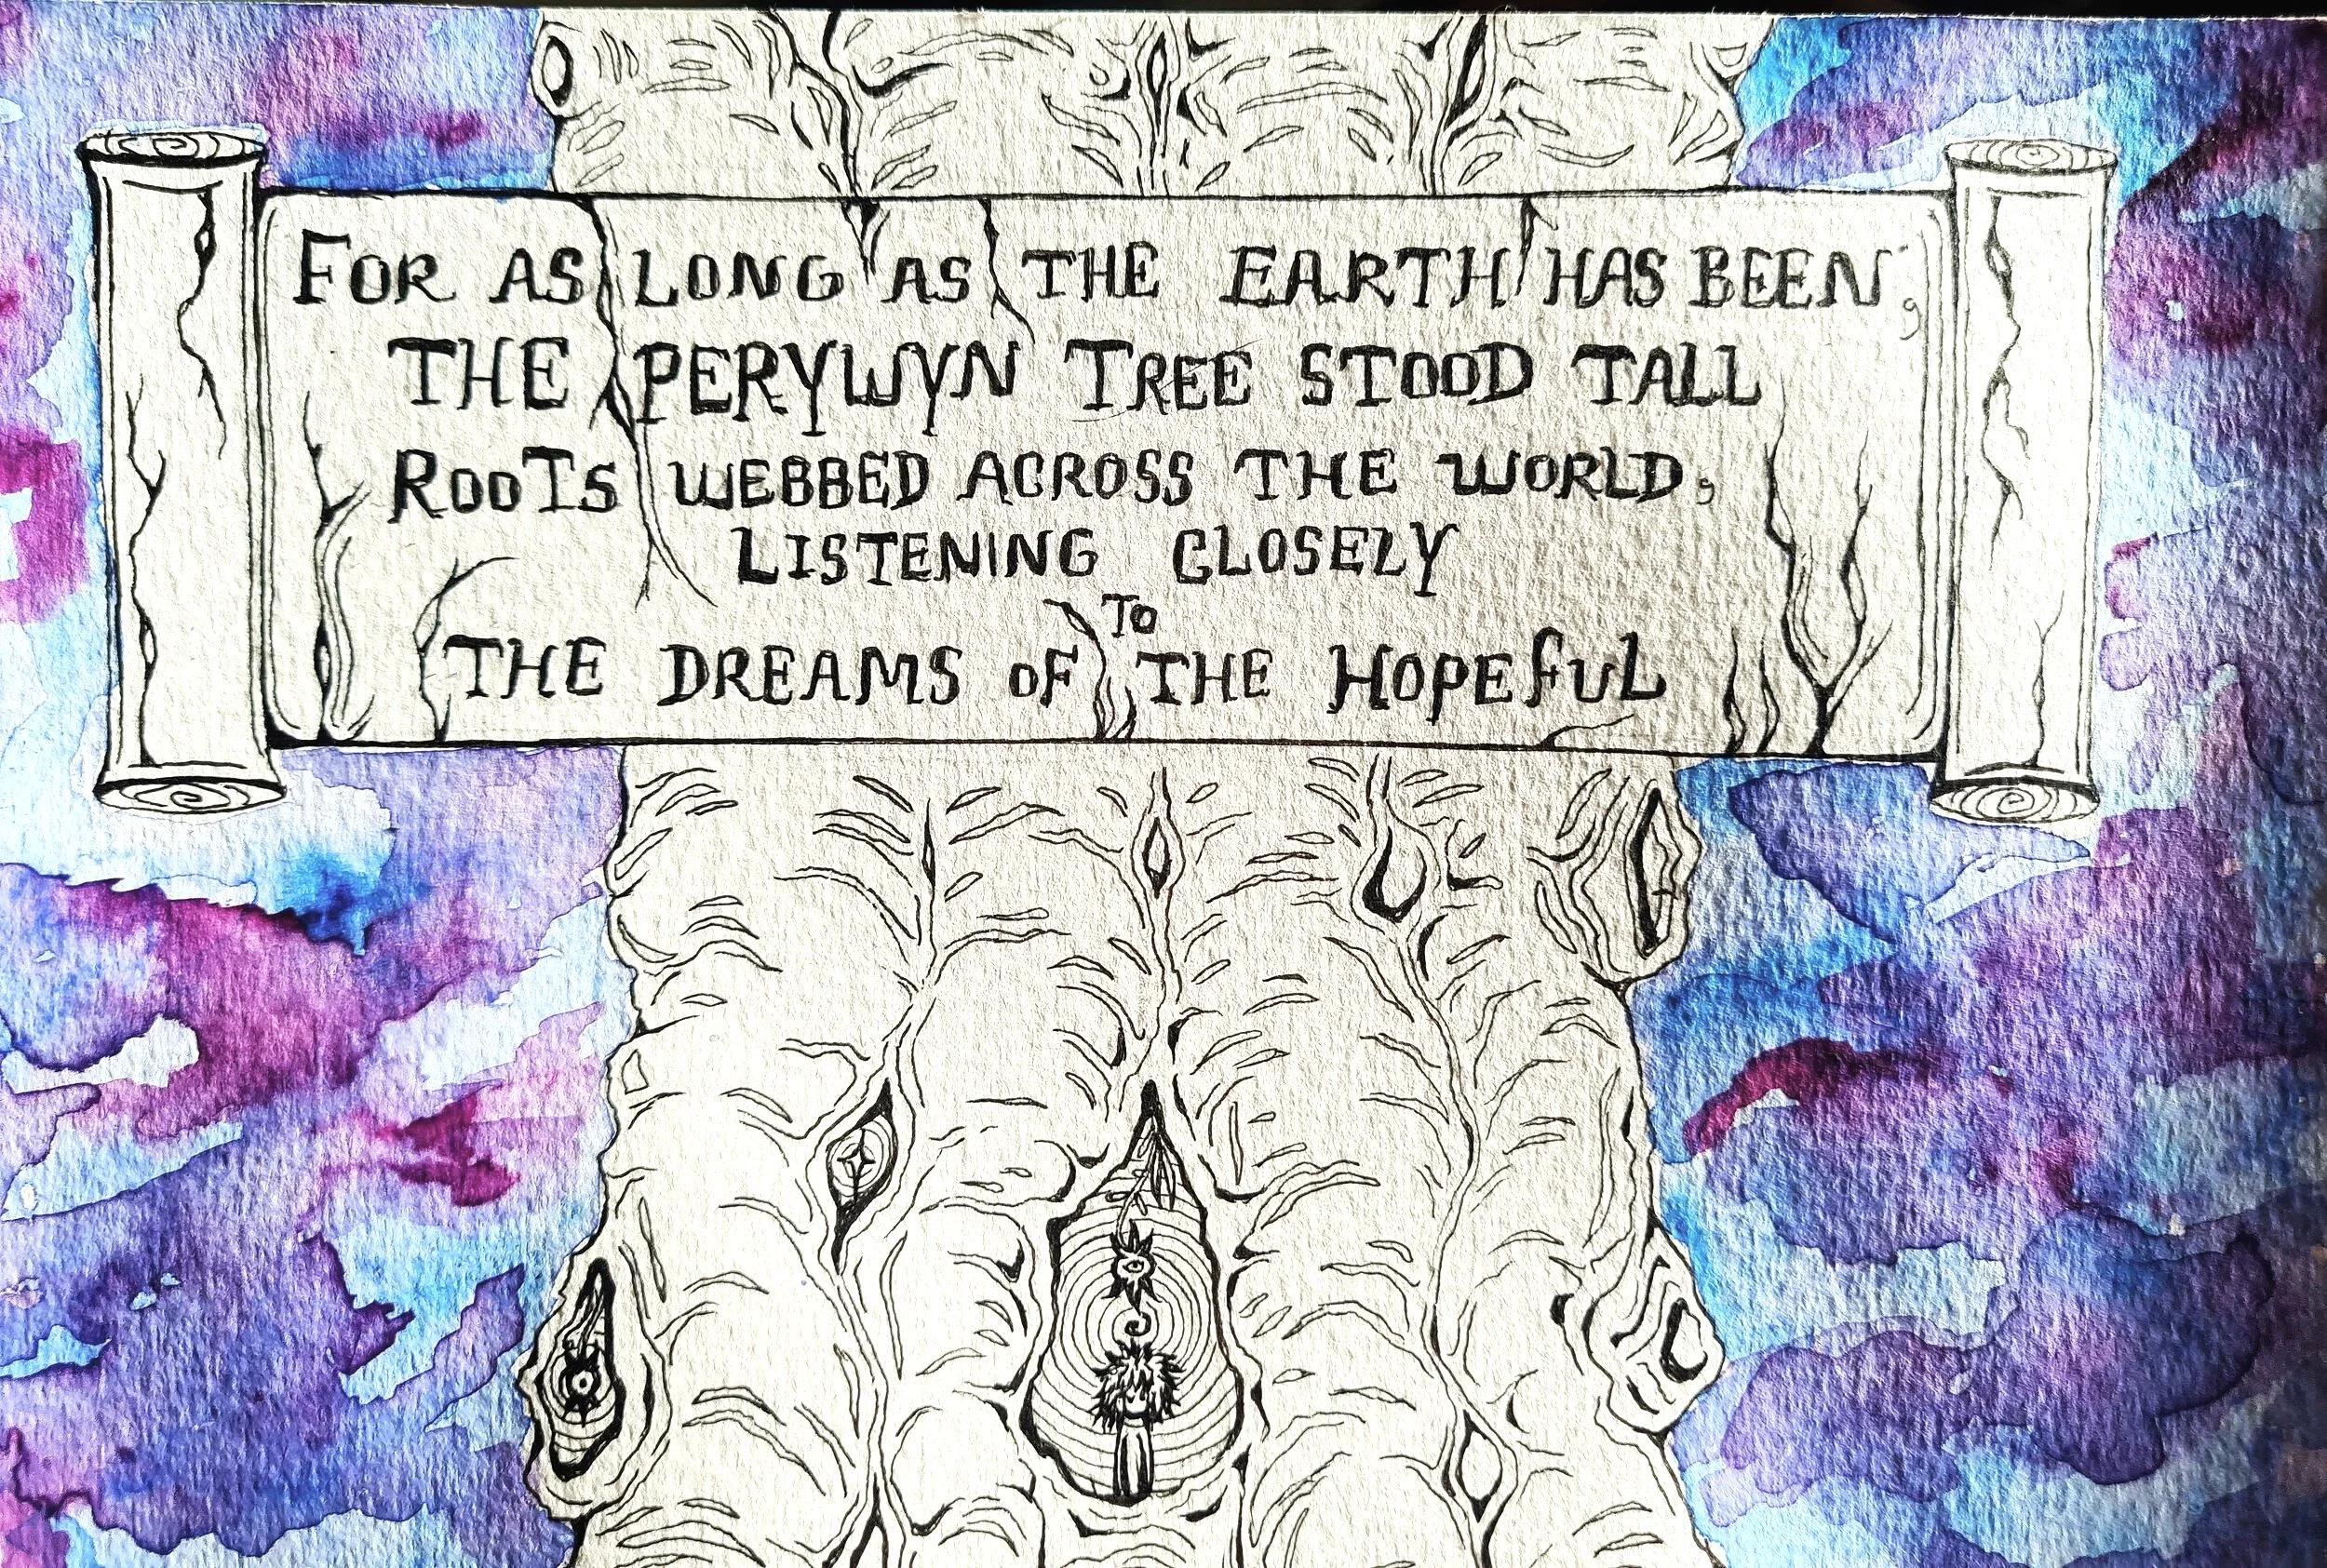 FOR AS LONG AS THE EARTH HAS BEEN,
THE PERYWYN TREE STOOD TALL
ROOTS WEBBED ACROSS THE WORLD,
LISTENING CLOSELY
TO
THE DREAMS OF THE HOPEFUL